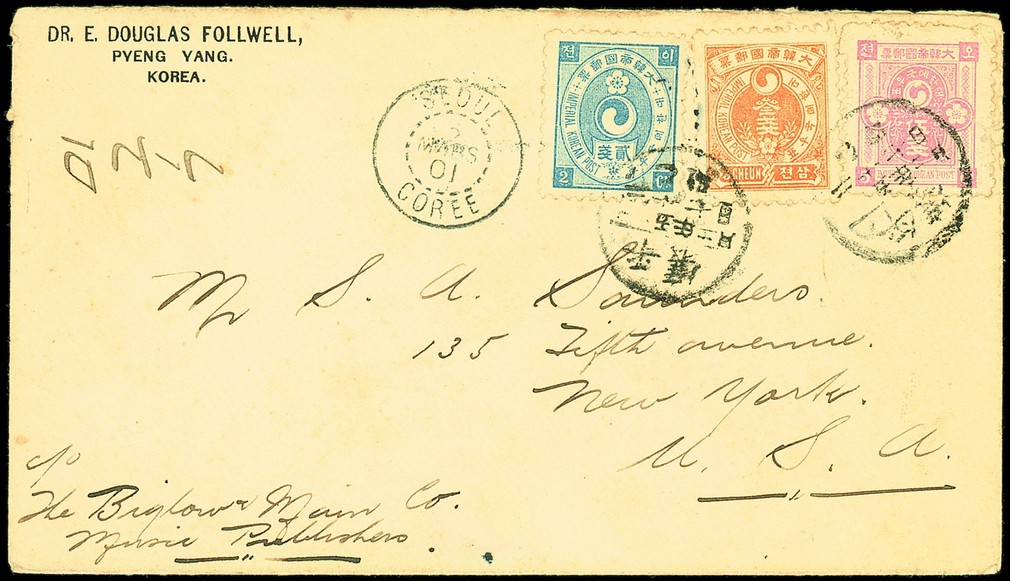 DR. E. DOUGLAS FOLLWELL,
PYENG YANG.
KOREA.
SEOUL
MARS
01
COREE
전 이
大韓帝國郵票
IMPERIAL KOREAN POST
貳錢
2 CH
大韓帝國郵票
IMPERIAL KOREAN POST
CHEUN 삼전
전 오
大韓帝國郵票
5
Mr S. A. Saunders.
135 Fifth avenue.
New York.
U. S. A.
c/o
The Biglow & Main Co.
Music Publishers.